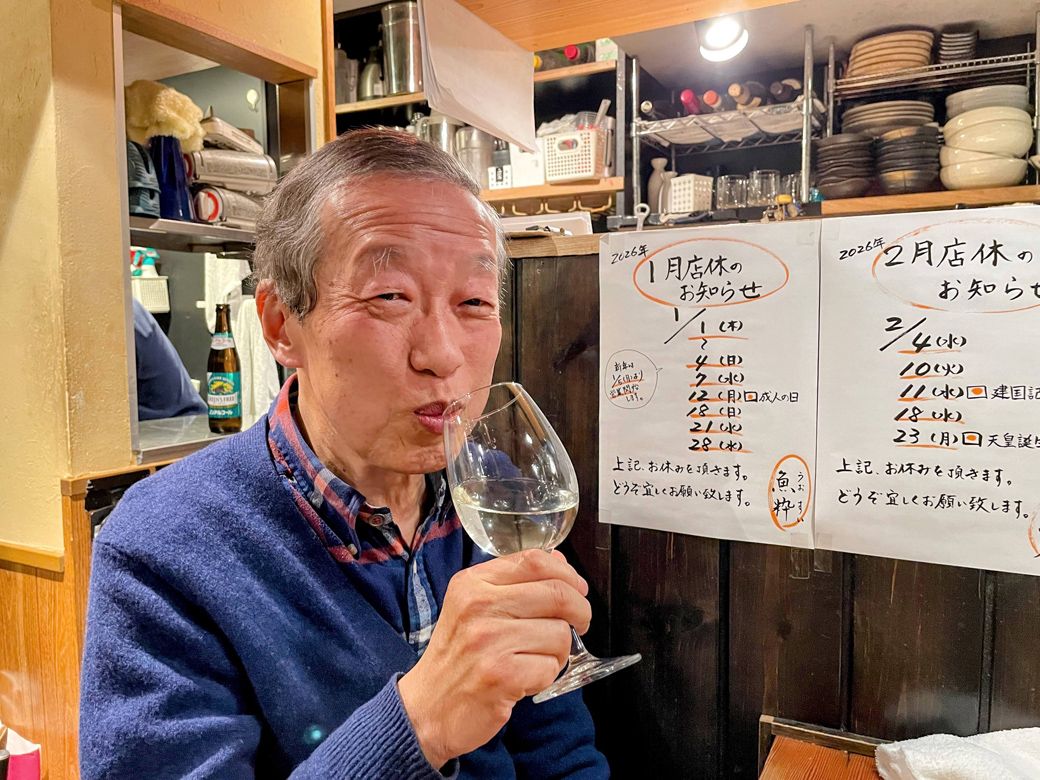 2026年
1月店休の
お知らせ
1/1(木)
〜
4(日)
7(水)
12(月)成人の日
18(日)
21(水)
28(水)
新年は
1/5(月)より
営業開始
します。
上記、お休みを頂きます。
どうぞ宜しくお願い致します。
魚粋
うおすい
2026年
2月店休の
お知らせ
2/4(水)
10(火)
11(水)建国記
18(水)
23(月)天皇誕生
上記、お休みを頂きます。
どうぞ宜しくお願い致します。
KIRIN'S FREE
ノンアルコール